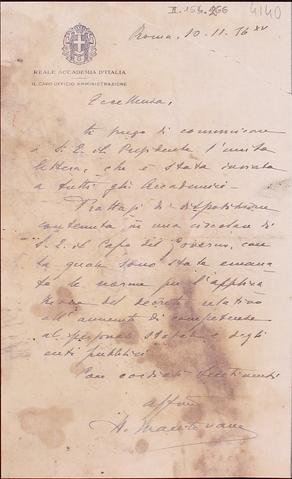 II.154.266
4140
REALE ACCADEMIA D'ITALIA
IL CAPO UFFICIO AMMINISTRAZIONE
Roma, 10.11.36 XV
Eccellenza,
ti prego di comunicare
a S. E. il Presidente l'unita
lettera, che è stata inviata
a tutti gli Accademici.
Trattasi di disposizione
contenuta in una circolare di
S. E. il Capo del Governo, con
la quale sono state emana
te le norme per l'applica
zione del decreto relativo
all'aumento di competenze
al personale statale e degli
enti pubblici.
Con cordiali sentimenti
aff.mo